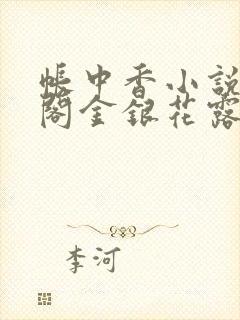 帳中香小說
閣金銀花露
李河